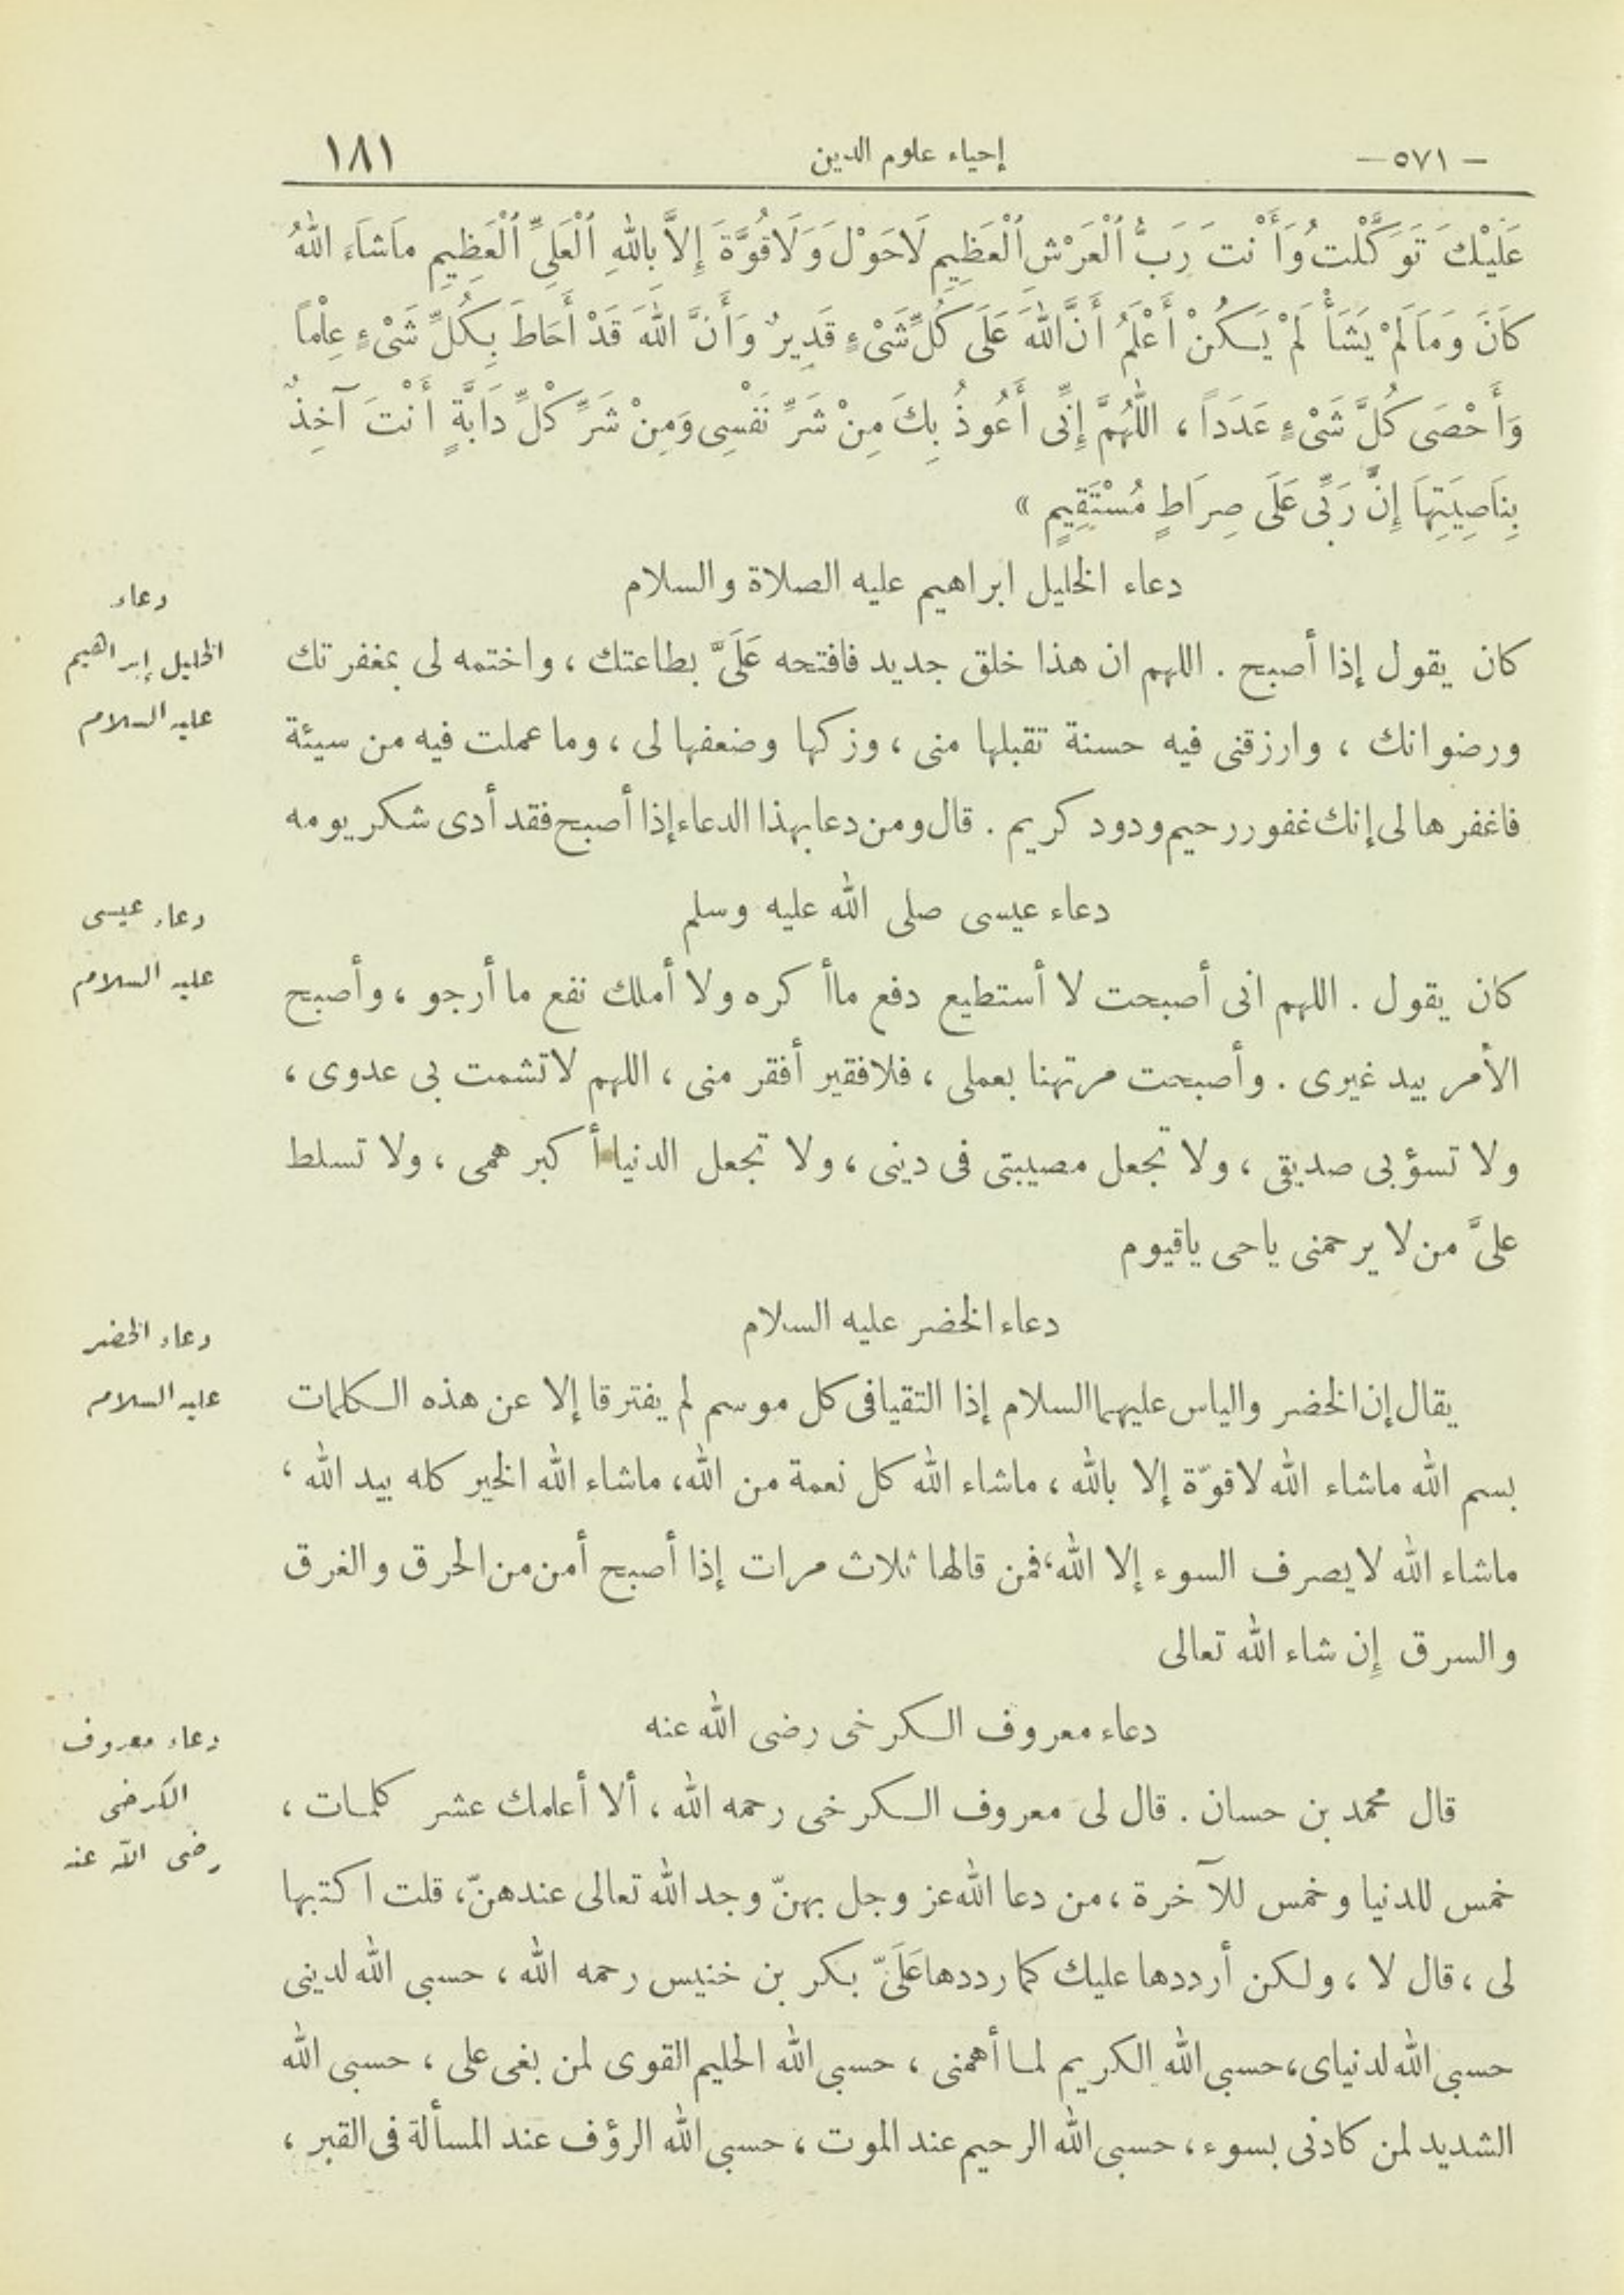 — ٥٧١ —
إحياء علوم الدين
١٨١
عَلَيْكَ تَوَكَّلْتُ وَأَنْتَ رَبُّ ٱلْعَرْشِ ٱلْعَظِيمِ لَاحَوْلَ وَلَاقُوَّةَ إِلاَّ بِاللهِ ٱلْعَلِىِّ ٱلْعَظِيمِ مَاشَاءَ اللهُ
كَانَ وَمَا لَمْ يَشَأْ لَمْ يَكُنْ أَعْلَمُ أَنَّ اللهَ عَلَى كُلِّ شَىْءٍ قَدِيرٌ وَأَنَّ اللهَ قَدْ أَحَاطَ بِكُلِّ شَىْءٍ عِلْماً
وَأَحْصَى كُلَّ شَىْءٍ عَدَداً ، اللَّهُمَّ إِنِّى أَعُوذُ بِكَ مِنْ شَرِّ نَفْسِى وَمِنْ شَرِّ كُلِّ دَابَّةٍ أَنْتَ آخِذٌ
بِنَاصِيَتِهَا إِنَّ رَبِّى عَلَى صِرَاطٍ مُسْتَقِيمٍ »
دعاء الخليل ابراهيم عليه الصلاة والسلام
دعاء
الخليل إبراهيم
عليه السلام
كان يقول إذا أصبح . اللهم ان هذا خلق جديد فافتحه عَلَىَّ بطاعتك ، واختمه لى بمغفرتك
ورضوانك ، وارزقنى فيه حسنة تقبلها منى ، وزكها وضعفها لى ، وما عملت فيه من سيئة
فاغفرها لى إنك غفور رحيم ودود كريم . قال ومن دعا بهذا الدعاء إذا أصبح فقد أدى شكر يومه
دعاء عيسى صلى الله عليه وسلم
دعاء عيسى
عليه السلام
كان يقول . اللهم انى أصبحت لا أستطيع دفع ماأكره ولا أملك نفع ما أرجو ، وأصبح
الأمر بيد غيرى . وأصبحت مرتهنا بعملى ، فلافقير أفقر منى ، اللهم لاتشمت بى عدوى ،
ولا تسؤبى صديقى ، ولا تجعل مصيبتى فى دينى ، ولا تجعل الدنيا أكبر همى ، ولا تسلط
علىَّ من لا يرحمنى ياحى ياقيوم
دعاء الخضر عليه السلام
دعاء الخضر
عليه السلام
يقال إن الخضر والياس عليهما السلام إذا التقيا فى كل موسم لم يفترقا إلا عن هذه الكلمات
بسم الله ماشاء الله لاقوّة إلا بالله ، ماشاء الله كل نعمة من الله، ماشاء الله الخير كله بيد الله ،
ماشاء الله لا يصرف السوء إلا الله ، فمن قالها ثلاث مرات إذا أصبح أمن من الحرق والغرق
والسرق إِن شاء الله تعالى
دعاء معروف الكرخى رضى الله عنه
دعاء معروف
الكرخى
رضى الله عنه
قال محمد بن حسان . قال لى معروف الكرخى رحمه الله ، ألا أعلمك عشر كلمات ،
خمس للدنيا وخمس للآخرة ، من دعا الله عز وجل بهنّ وجد الله تعالى عندهنّ، قلت اكتبها
لى ، قال لا ، ولكن أرددها عليك كما رددها عَلَىَّ بكر بن خنيس رحمه الله ، حسبى الله لدينى
حسبى الله لدنياى، حسبى الله الكريم لما أهمنى ، حسبى الله الحليم القوى لمن بغى على ، حسبى الله
الشديد لمن كادنى بسوء ، حسبى الله الرحيم عند الموت ، حسبى الله الرؤف عند المسألة فى القبر ،